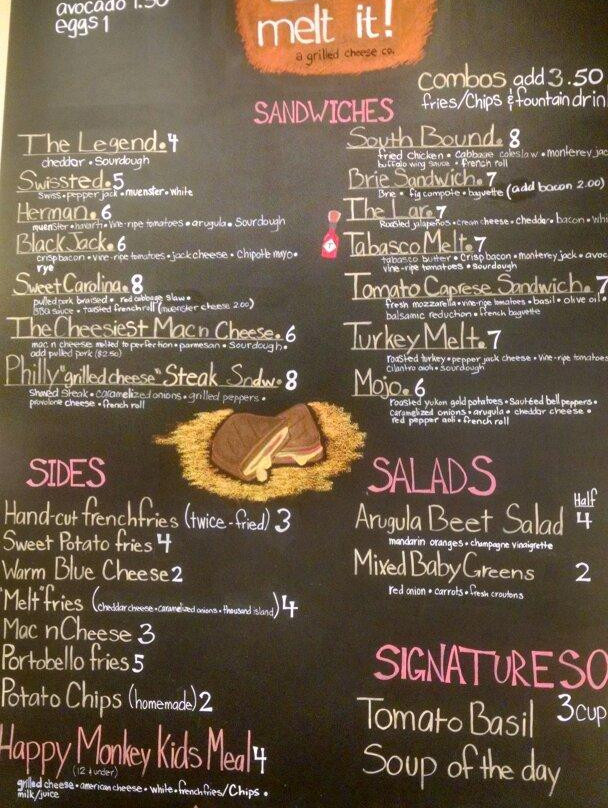 avocado 1.50
eggs 1
melt it!
a grilled cheese co.
combos add 3.50
fries/Chips & fountain drin
SANDWICHES
The Legend. 4
cheddar • Sourdough
Swissted. 5
Swiss • pepper jack • muenster • white
Herman. 6
muenster • havarti • Vine-ripe tomatoes • arugula • Sourdough
Black Jack. 6
crisp bacon • vine-ripe tomatoes • jack cheese • Chipotle mayo •
rye
Sweet Carolina. 8
pulled pork braised • red cabbage slaw •
BBQ sauce • toasted french roll (muenster cheese 2.00)
The Cheesiest Mac n Cheese. 6
mac n cheese melted to perfection • parmesan • Sourdough •
add pulled pork ($2.50)
Philly "grilled cheese" Steak Sndw. 8
Shaved Steak • caramelized onions • grilled peppers •
provolone cheese • french roll
South Bound. 8
fried chicken • Cabbage coleslaw • monterey jac
buffalo wing sauce • french roll
Brie Sandwich. 7
Brie • fig compote • baguette (add bacon 2.00)
The Lar. 7
Roasted jalapeños • cream cheese • cheddar • bacon • whi
Tabasco Melt. 7
tabasco butter • Crisp bacon • monterey jack • avoc
vine-ripe tomatoes • sourdough
Tomato Caprese Sandwich. 7
fresh mozzarella • vine-ripe tomatoes • basil • olive oil •
balsamic reduction • french baguette
Turkey Melt. 7
roasted turkey • pepper jack cheese • Vine-ripe tomatoes
Cilantro aioli • sourdough
Mojo. 6
roasted yukon gold potatoes • Sautéed bell peppers •
Caramelized onions • arugula • cheddar cheese •
red pepper aioli • french roll
SIDES
Hand-cut french fries (twice-fried) 3
Sweet Potato fries 4
Warm Blue Cheese 2
"Melt" fries (cheddar cheese • caramelized onions • thousand island) 4
Mac n Cheese 3
Portobello fries 5
Potato Chips (homemade) 2
Happy Monkey Kids Meal 4
(12 & under)
grilled cheese • american cheese • white • french fries/Chips •
milk/juice
SALADS
Half
Arugula Beet Salad 4
mandarin oranges • champagne vinaigrette
Mixed Baby Greens 2
red onion • carrots • fresh croutons
SIGNATURE SO
Tomato Basil 3 cup
Soup of the day